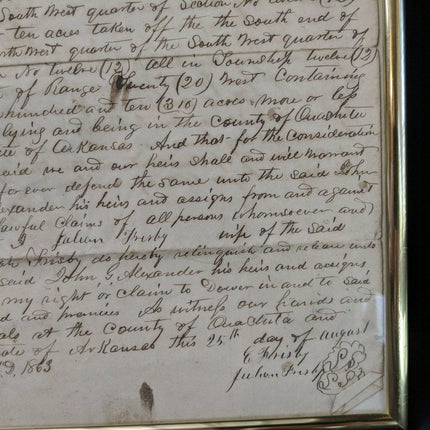 South West quarter of Section No
ten acres taken off the the South end of
West quarter of the South West quarter of
No twelve (12) all in Township twelve (12)
of Range Twenty (20) West Containing
hundred and ten (310) acres more or less
lying and being in the County of Ouachita
of Arkansas. And that for the consideration
said we and our heirs shall and will warrant
forever defend the same unto the said John
exander his heirs and assigns from and against
lawful Claims of all persons whomsoever and
I Julian Frisby wife of the said
Frisby do hereby relinquish and release unto
said John G Alexander his heirs and assigns
my right or claim to Dower in and to said
d and premises In witness our hands and
als at the County of Ouachita and
ate of Arkansas this 25th day of August
D, 1863 E Frisby
Julian Frisby